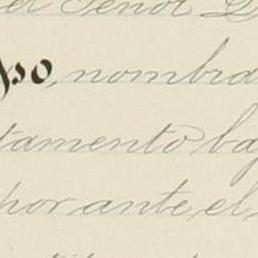 el Señor D
so, nombra
tamento baj
por ante el